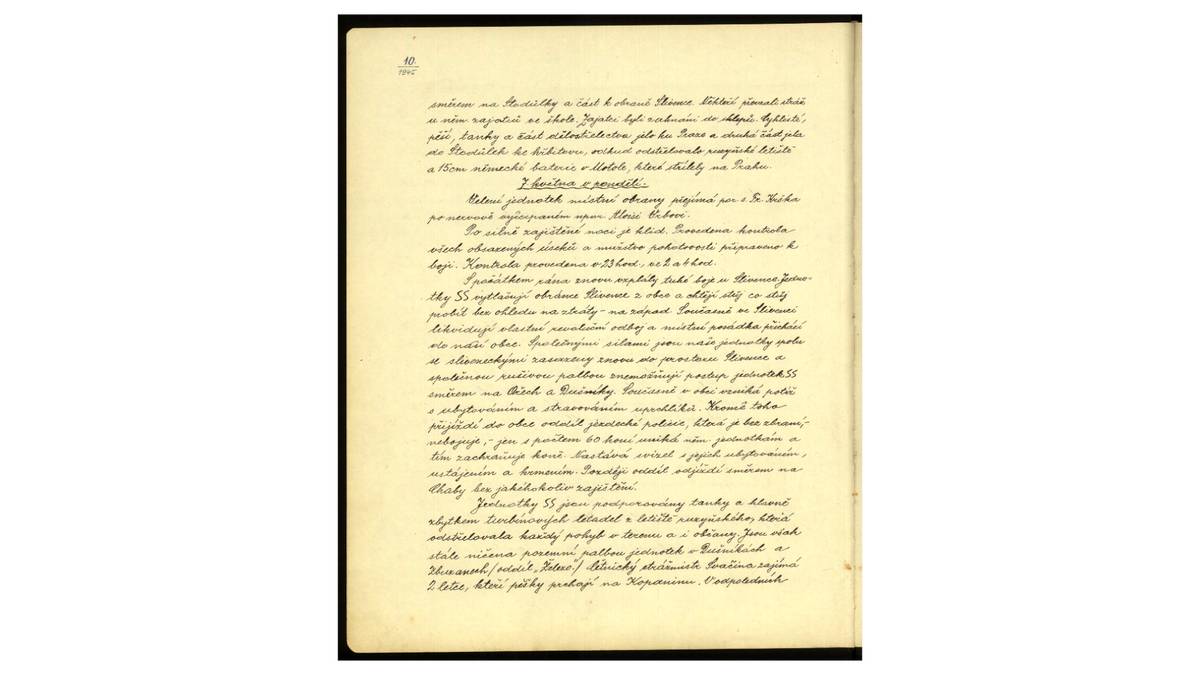 10.
1945
směrem na Stodůlky a část k obraně Slivence. Někteří převzali stráž
u něm. zajatců ve škole. Zajatci byli zahnáni do sklepů. Cyklisté,
pěší, tanky a část dělostřelectva jelo ku Praze a druhá část jela
do Stodůlek ke hřbitovu, odkud odstřelovala ruzyňské letiště
a 15cm německé baterie v Motole, které střílely na Prahu.
7. května v pondělí.
Velení jednotek místní obrany přejímá por. s. Fr. Kříška
po nervově vyčerpaném npor. Aloisi Vrbovi.
Po silně zajištěné noci je klid. Provedena kontrola
všech obsazených úseků a mužstvo pohotovosti připraveno k
boji. Kontrola provedena v 23 hod., ve 2 a 4 hod.
Spočátkem rána znovu vzplály tuhé boje u Slivence. Jedno-
tky SS vytlačují obránce Slivence z obce a chtějí stůj co stůj
probít bez ohledu na ztráty - na západ. Současně ve Slivenci
likvidují vlastní revoluční odboj a místní posádka přichází
do naší obce. Společnými silami jsou naše jednotky spolu
se sliveneckými zasazeny znovu do prostoru Slivence a
společnou rušivou palbou znemožňují postup jednotek SS
směrem na Ořech a Dušníky. Současně v obci vzniká potíž
s ubytováním a stravováním uprchlíků. Kromě toho
přijíždí do obce oddíl jezdecké policie, která je bez zbraní,-
nebojuje,- jen s počtem 60 koní uniká něm. jednotkám a
tím zachraňuje koně. Nastává svízel s jejich ubytováním,
ustájením a krmením. Později oddíl odjíždí směrem na
Chaby bez jakéhokoliv zajištění.
Jednotky SS jsou podporovány tanky a hlavně
zbytkem turbínových letadel z letiště ruzyňského, která
odstřelovala každý pohyb v terenu a i občany. Jsou však
stále ničena pozemní palbou jednotek v Dušníkách a
Zbuzanech /oddíl „Železo"/ letnický strážmistr Svačina zajímá
2 letce, kteří pěšky prchají na Kopaninu. V odpoledních